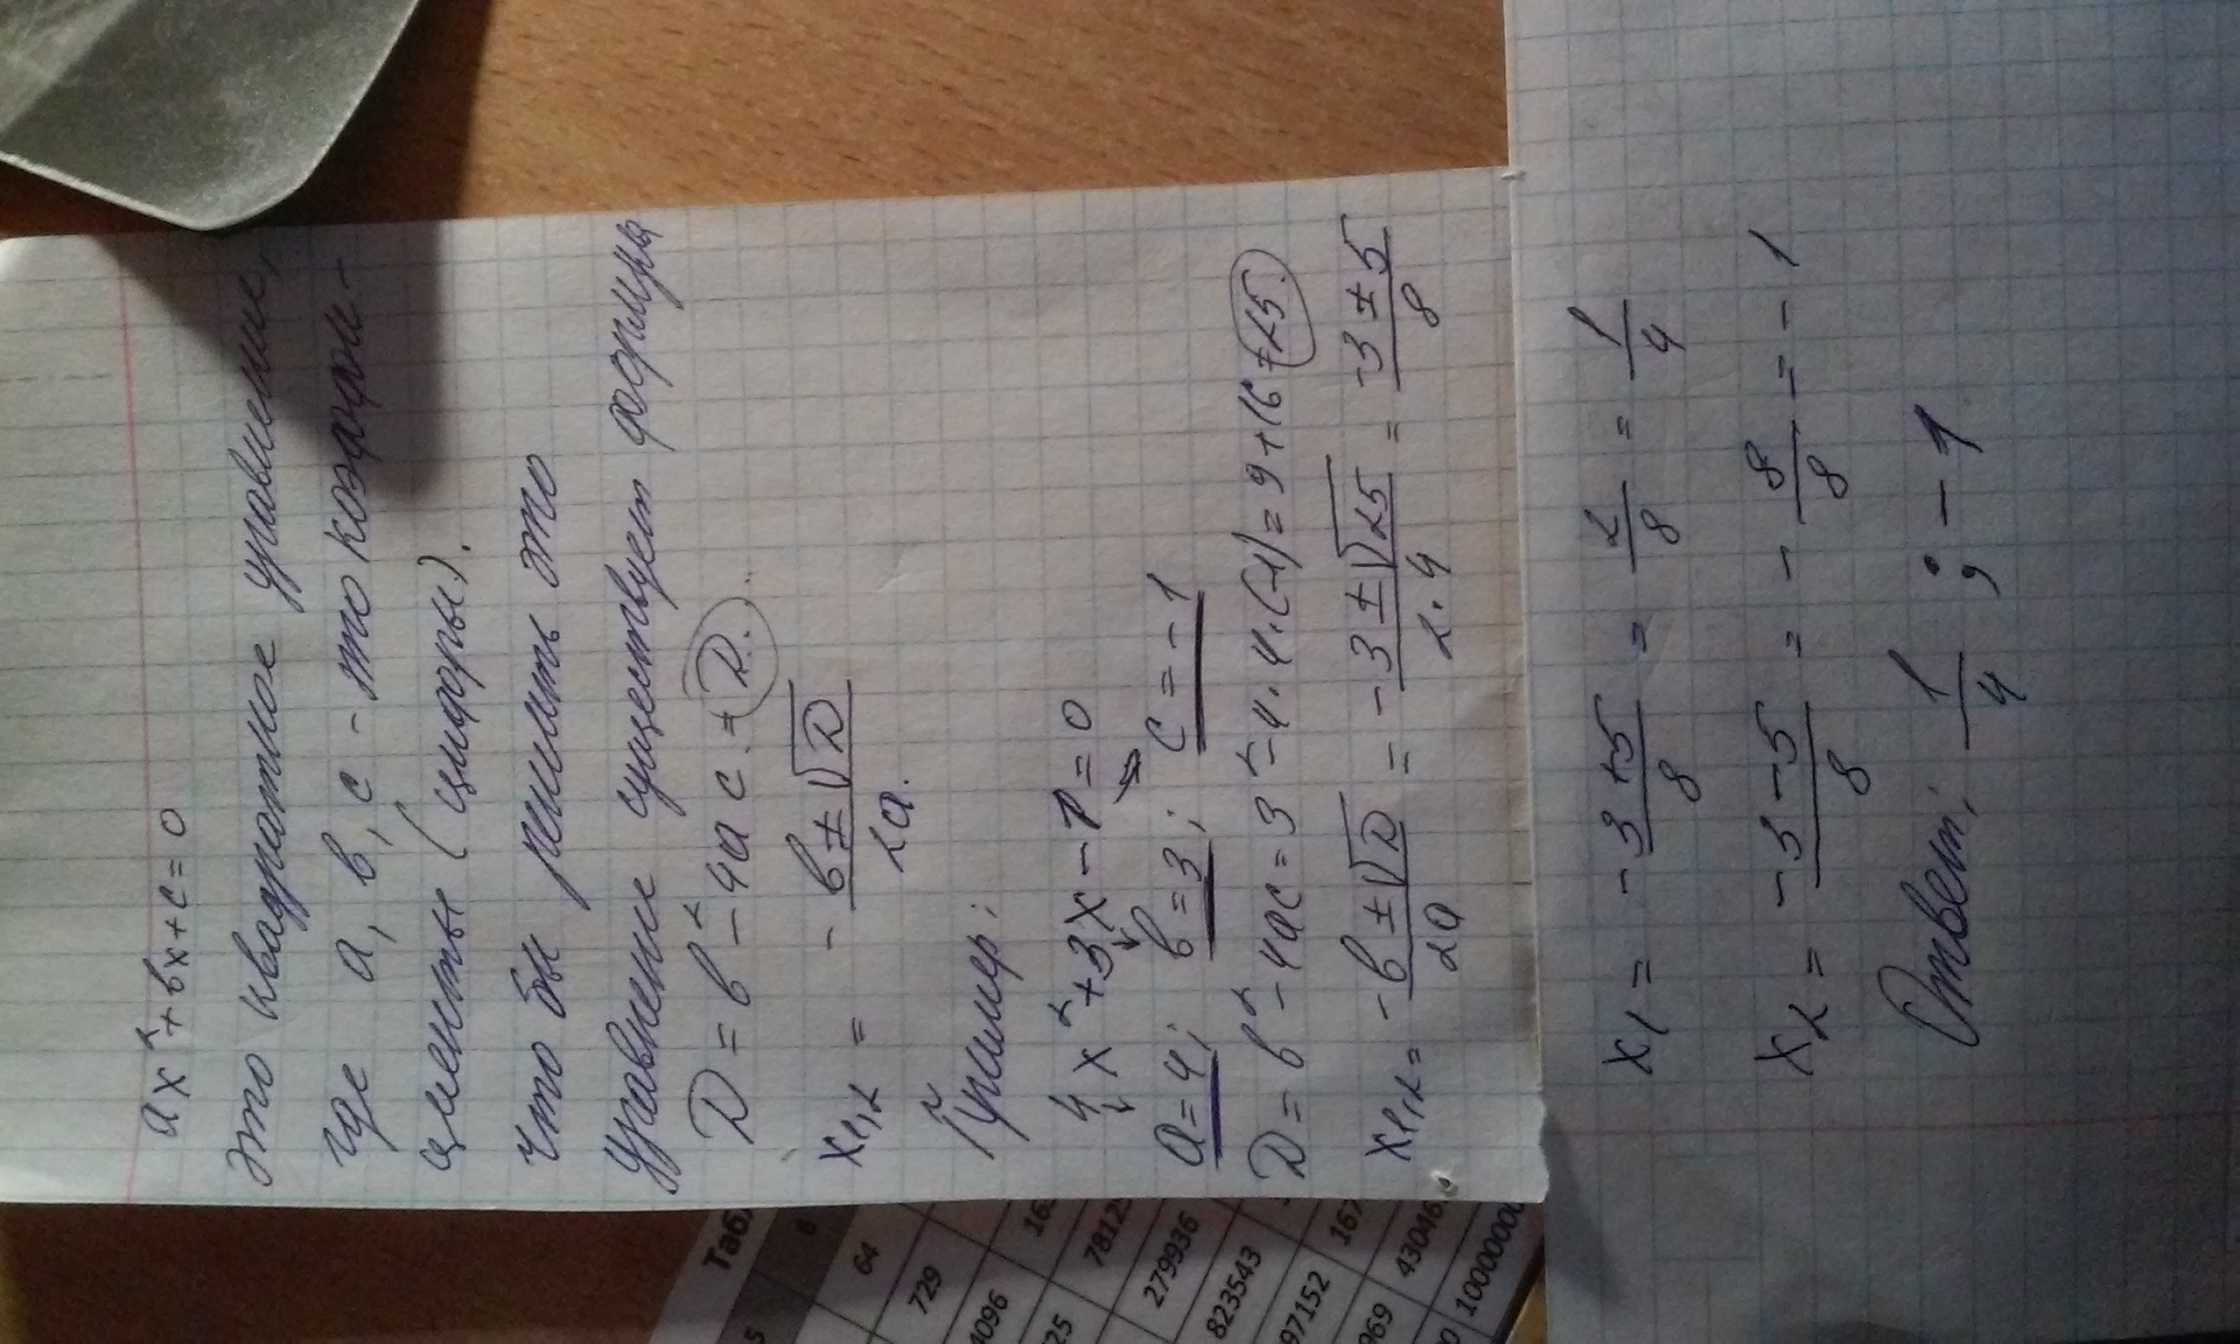 ax² + bx + c = 0
это квадратное уравнение,
где a, b, c - это коэффи-
циенты (цифры).
что бы решить это
уравнение существует формула
D = b² - 4ac. = D.
x₁,₂ = -b ± √D / 2a.
Пример:
4x² + 3x - 1 = 0
a = 4; b = 3; c = -1
D = b² - 4ac = 3² - 4·4·(-1) = 9 + 16 = 25.
x₁,₂ = -b ± √D / 2a = -3 ± √25 / 2·4 = -3 ± 5 / 8
x₁ = -3 + 5 / 8 = 2/8 = 1/4
x₂ = -3 - 5 / 8 = - 8/8 = -1
Ответ: 1/4 ; -1
6
64
729
4096
279936
823543
97152
969